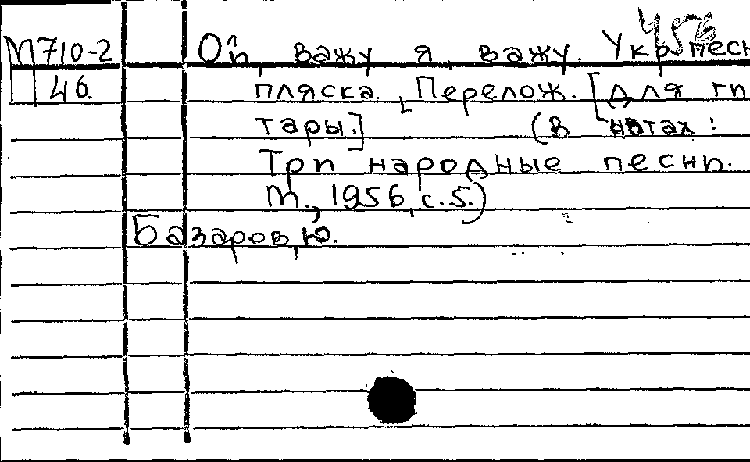 456
М710-2 Ой, важу я, важу. Укр. песн
46. пляска. [Перелож. [для ги
тары.] (В нотах:
Три народные песни.
М., 1956, с. 5.)
Базаров, Ю.